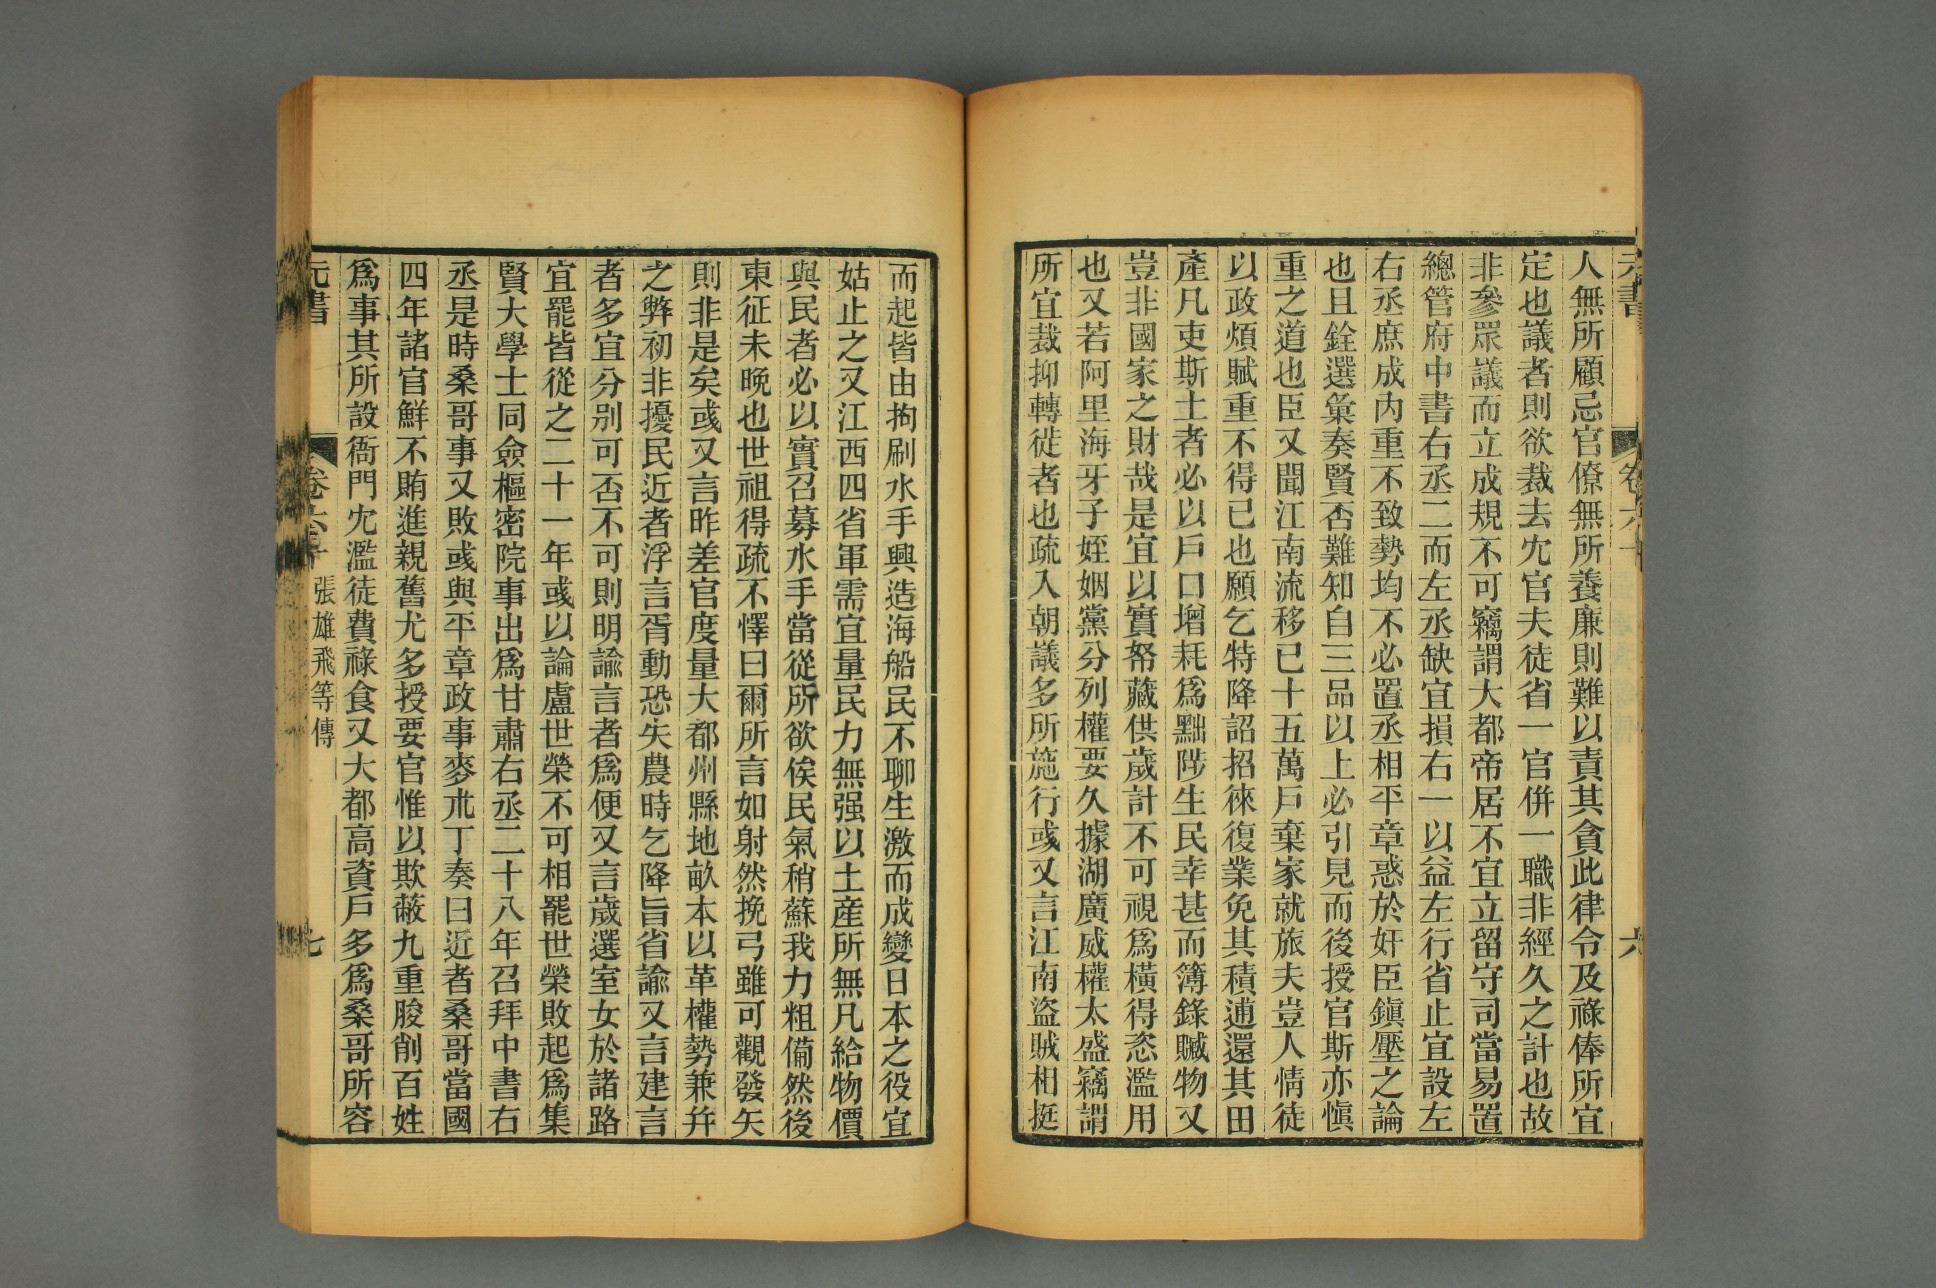 元書
卷六十
六
人無所顧忌官僚無所養廉則難以責其貪此律令及祿俸所宜
定也議者則欲裁去冗官夫徒省一官併一職非經久之計也故
非參眾議而立成規不可竊謂大都帝居不宜立留守司當易置
總管府中書右丞二而左丞缺宜損右一以益左行省止宜設左
右丞庶成內重不致勢均不必置丞相平章惑於奸臣鎭壓之論
也且銓選彙奏賢否難知自三品以上必引見而後授官斯亦愼
重之道也臣又聞江南流移已十五萬戶棄家就旅夫豈人情徒
以政煩賦重不得已也願乞特降詔招徠復業免其積逋還其田
產凡吏斯土者必以戶口增耗爲黜陟生民幸甚而簿錄贓物又
豈非國家之財哉是宜以實帑藏供歲計不可視爲橫得恣濫用
也又若阿里海牙子姪姻黨分列權要久據湖廣威權太盛竊謂
所宜裁抑轉徙者也疏入朝議多所施行彧又言江南盜賊相挺
而起皆由拘刷水手興造海船民不聊生激而成變日本之役宜
姑止之又江西四省軍需宜量民力無强以土產所無凡給物價
與民者必以實召募水手當從所欲俟民氣稍蘇我力粗備然後
東征未晚也世祖得疏不懌曰爾所言如射然挽弓雖可觀發矢
則非是矣彧又言昨差官度量大都州縣地畝本以革權勢兼并
之弊初非擾民近者浮言胥動恐失農時乞降旨省諭又言建言
者多宜分別可否不可則明諭言者爲便又言歲選室女於諸路
宜罷皆從之二十一年彧以論盧世榮不可相罷世榮敗起爲集
賢大學士同僉樞密院事出爲甘肅右丞二十八年召拜中書右
丞是時桑哥事又敗彧與平章政事麥朮丁奏曰近者桑哥當國
四年諸官鮮不賄進親舊尤多授要官惟以欺蔽九重朘削百姓
爲事其所設衙門冗濫徒費祿食又大都高資戶多爲桑哥所容
元書
卷六十
張雄飛等傳
七